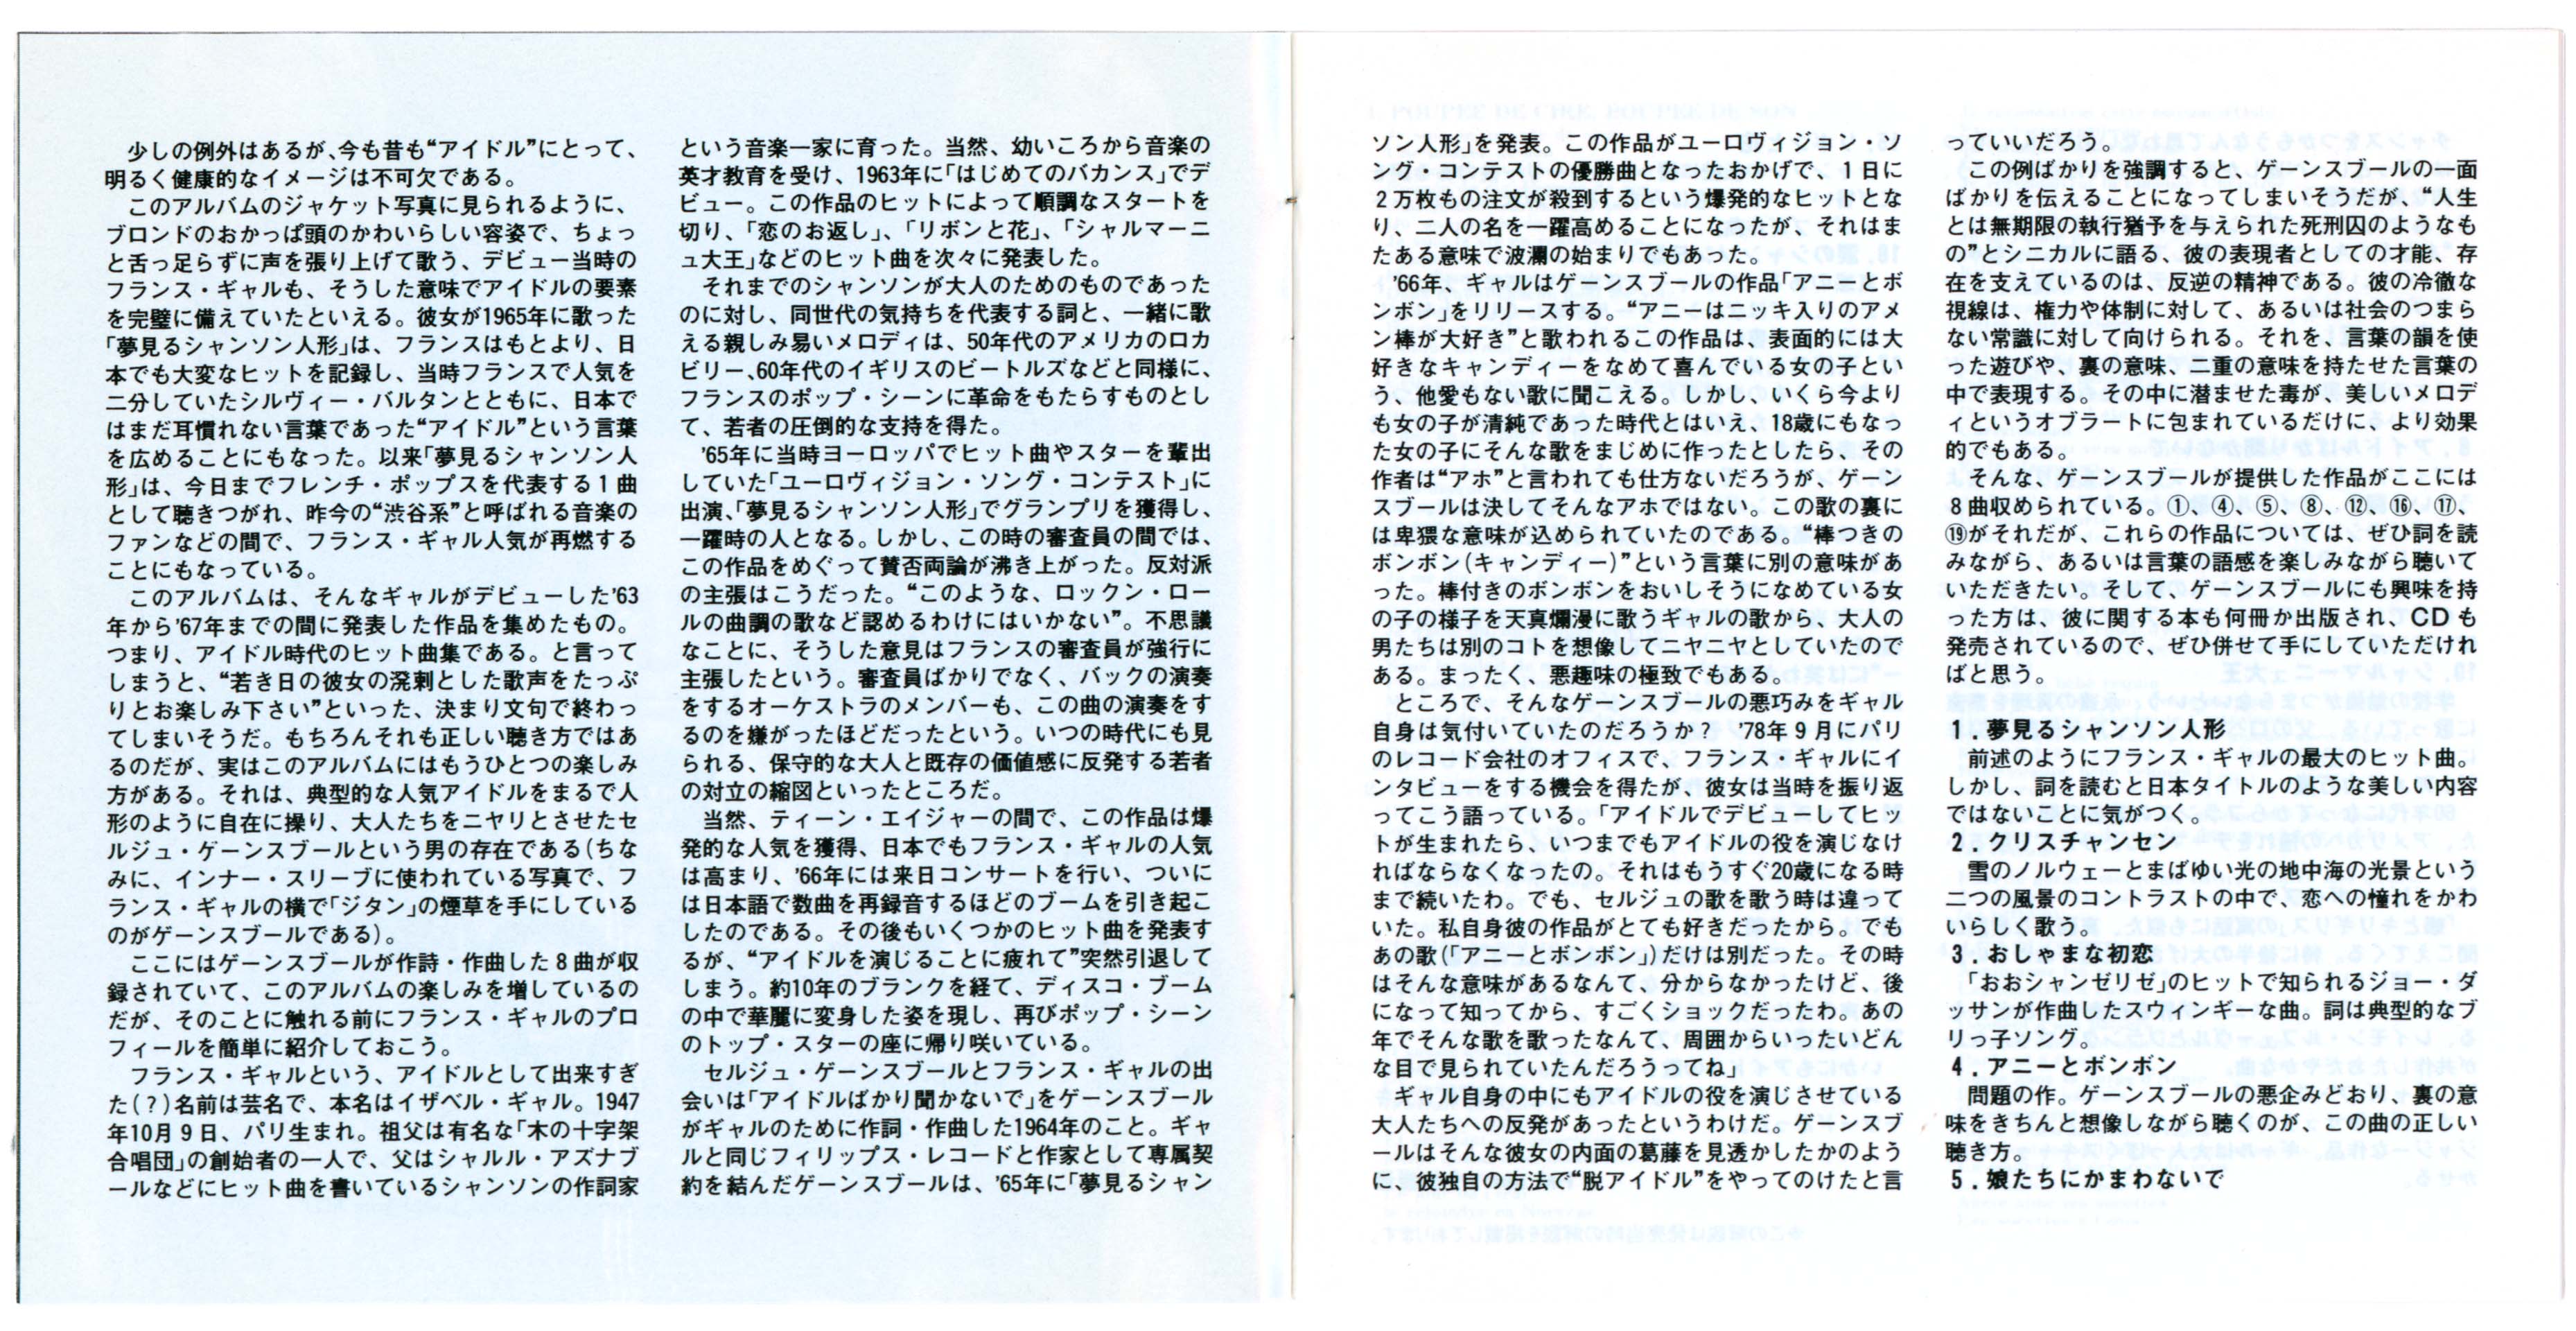 少しの例外はあるが、今も昔も“アイドル”にとって、
明るく健康的なイメージは不可欠である。
このアルバムのジャケット写真に見られるように、
ブロンドのおかっぱ頭のかわいらしい容姿で、ちょっ
と舌っ足らずに声を張り上げて歌う、デビュー当時の
フランス・ギャルも、そうした意味でアイドルの要素
を完璧に備えていたといえる。彼女が1965年に歌った
「夢見るシャンソン人形」は、フランスはもとより、日
本でも大変なヒットを記録し、当時フランスで人気を
二分していたシルヴィー・バルタンとともに、日本で
はまだ耳慣れない言葉であった“アイドル”という言葉
を広めることにもなった。以来「夢見るシャンソン人
形」は、今日までフレンチ・ポップスを代表する1曲
として聴きつがれ、昨今の“渋谷系”と呼ばれる音楽の
ファンなどの間で、フランス・ギャル人気が再燃する
ことにもなっている。
このアルバムは、そんなギャルがデビューした'63
年から'67年までの間に発表した作品を集めたもの。
つまり、アイドル時代のヒット曲集である。と言って
しまうと、“若き日の彼女の溌剌とした歌声をたっぷ
りとお楽しみ下さい”といった、決まり文句で終わっ
てしまいそうだ。もちろんそれも正しい聴き方ではあ
るのだが、実はこのアルバムにはもうひとつの楽しみ
方がある。それは、典型的な人気アイドルをまるで人
形のように自在に操り、大人たちをニヤリとさせたセ
ルジュ・ゲーンスブールという男の存在である(ちな
みに、インナー・スリーブに使われている写真で、フ
ランス・ギャルの横で「ジタン」の煙草を手にしている
のがゲーンスブールである)。
ここにはゲーンスブールが作詩・作曲した8曲が収
録されていて、このアルバムの楽しみを増しているの
だが、そのことに触れる前にフランス・ギャルのプロ
フィールを簡単に紹介しておこう。
フランス・ギャルという、アイドルとして出来すぎ
た(?)名前は芸名で、本名はイザベル・ギャル。1947
年10月9日、パリ生まれ。祖父は有名な「木の十字架
合唱団」の創始者の一人で、父はシャルル・アズナブ
ールなどにヒット曲を書いているシャンソンの作詞家
という音楽一家に育った。当然、幼いころから音楽の
英才教育を受け、1963年に「はじめてのバカンス」でデ
ビュー。この作品のヒットによって順調なスタートを
切り、「恋のお返し」、「リボンと花」、「シャルマーニ
ュ大王」などのヒット曲を次々に発表した。
それまでのシャンソンが大人のためのものであった
のに対し、同世代の気持ちを代表する詞と、一緒に歌
える親しみ易いメロディは、50年代のアメリカのロカ
ビリー、60年代のイギリスのビートルズなどと同様に、
フランスのポップ・シーンに革命をもたらすものとし
て、若者の圧倒的な支持を得た。
'65年に当時ヨーロッパでヒット曲やスターを輩出
していた「ユーロヴィジョン・ソング・コンテスト」に
出演、「夢見るシャンソン人形」でグランプリを獲得し、
一躍時の人となる。しかし、この時の審査員の間では、
この作品をめぐって賛否両論が沸き上がった。反対派
の主張はこうだった。“このような、ロックン・ロー
ルの曲調の歌など認めるわけにはいかない”。不思議
なことに、そうした意見はフランスの審査員が強行に
主張したという。審査員ばかりでなく、バックの演奏
をするオーケストラのメンバーも、この曲の演奏をす
るのを嫌がったほどだったという。いつの時代にも見
られる、保守的な大人と既存の価値感に反発する若者
の対立の縮図といったところだ。
当然、ティーン・エイジャーの間で、この作品は爆
発的な人気を獲得、日本でもフランス・ギャルの人気
は高まり、'66年には来日コンサートを行い、ついに
は日本語で数曲を再録音するほどのブームを引き起こ
したのである。その後もいくつかのヒット曲を発表す
るが、“アイドルを演じることに疲れて”突然引退して
しまう。約10年のブランクを経て、ディスコ・ブーム
の中で華麗に変身した姿を現し、再びポップ・シーン
のトップ・スターの座に帰り咲いている。
セルジュ・ゲーンスブールとフランス・ギャルの出
会いは「アイドルばかり聞かないで」をゲーンスブール
がギャルのために作詞・作曲した1964年のこと。ギャ
ルと同じフィリップス・レコードと作家として専属契
約を結んだゲーンスブールは、'65年に「夢見るシャン
ソン人形」を発表。この作品がユーロヴィジョン・ソ
ング・コンテストの優勝曲となったおかげで、1日に
2万枚もの注文が殺到するという爆発的なヒットとな
り、二人の名を一躍高めることになったが、それはま
たある意味で波瀾の始まりでもあった。
'66年、ギャルはゲーンスブールの作品「アニーとボ
ンボン」をリリースする。“アニーはニッキ入りのアメ
ン棒が大好き”と歌われるこの作品は、表面的には大
好きなキャンディーをなめて喜んでいる女の子とい
う、他愛もない歌に聞こえる。しかし、いくら今より
も女の子が清純であった時代とはいえ、18歳にもなっ
た女の子にそんな歌をまじめに作ったとしたら、その
作者は“アホ”と言われても仕方ないだろうが、ゲーン
スブールは決してそんなアホではない。この歌の裏に
は卑猥な意味が込められていたのである。“棒つきの
ボンボン(キャンディー)”という言葉に別の意味があ
った。棒付きのボンボンをおいしそうになめている女
の子の様子を天真爛漫に歌うギャルの歌から、大人の
男たちは別のコトを想像してニヤニヤとしていたので
ある。まったく、悪趣味の極致でもある。
ところで、そんなゲーンスブールの悪巧みをギャル
自身は気付いていたのだろうか? '78年9月にパリ
のレコード会社のオフィスで、フランス・ギャルにイ
ンタビューをする機会を得たが、彼女は当時を振り返
ってこう語っている。「アイドルでデビューしてヒッ
トが生まれたら、いつまでもアイドルの役を演じなけ
ればならなくなったの。それはもうすぐ20歳になる時
まで続いたわ。でも、セルジュの歌を歌う時は違って
いた。私自身彼の作品がとても好きだったから。でも
あの歌(「アニーとボンボン」)だけは別だった。その時
はそんな意味があるなんて、分からなかったけど、後
になって知ってから、すごくショックだったわ。あの
年でそんな歌を歌ったなんて、周囲からいったいどん
な目で見られていたんだろうってね」
ギャル自身の中にもアイドルの役を演じさせている
大人たちへの反発があったというわけだ。ゲーンスブ
ールはそんな彼女の内面の葛藤を見透かしたかのよう
に、彼独自の方法で“脱アイドル”をやってのけたと言
っていいだろう。
この例ばかりを強調すると、ゲーンスブールの一面
ばかりを伝えることになってしまいそうだが、“人生
とは無期限の執行猶予を与えられた死刑囚のようなも
の”とシニカルに語る、彼の表現者としての才能、存
在を支えているのは、反逆の精神である。彼の冷徹な
視線は、権力や体制に対して、あるいは社会のつまら
ない常識に対して向けられる。それを、言葉の韻を使
った遊びや、裏の意味、二重の意味を持たせた言葉の
中で表現する。その中に潜ませた毒が、美しいメロデ
ィというオブラートに包まれているだけに、より効果
的でもある。
そんな、ゲーンスブールが提供した作品がここには
8曲収められている。①、④、⑤、⑧、⑫、⑯、⑰、
⑲がそれだが、これらの作品については、ぜひ詞を読
みながら、あるいは言葉の語感を楽しみながら聴いて
いただきたい。そして、ゲーンスブールにも興味を持
った方は、彼に関する本も何冊か出版され、CDも
発売されているので、ぜひ併せて手にしていただけれ
ばと思う。
1．夢見るシャンソン人形
前述のようにフランス・ギャルの最大のヒット曲。
しかし、詞を読むと日本タイトルのような美しい内容
ではないことに気がつく。
2．クリスチャンセン
雪のノルウェーとまばゆい光の地中海の光景という
二つの風景のコントラストの中で、恋への憧れをかわ
いらしく歌う。
3．おしゃまな初恋
「おおシャンゼリゼ」のヒットで知られるジョー・ダ
ッサンが作曲したスウィンギーな曲。詞は典型的なブ
リっ子ソング。
4．アニーとボンボン
問題の作。ゲーンスブールの悪企みどおり、裏の意
味をきちんと想像しながら聴くのが、この曲の正しい
聴き方。
5．娘たちにかまわないで